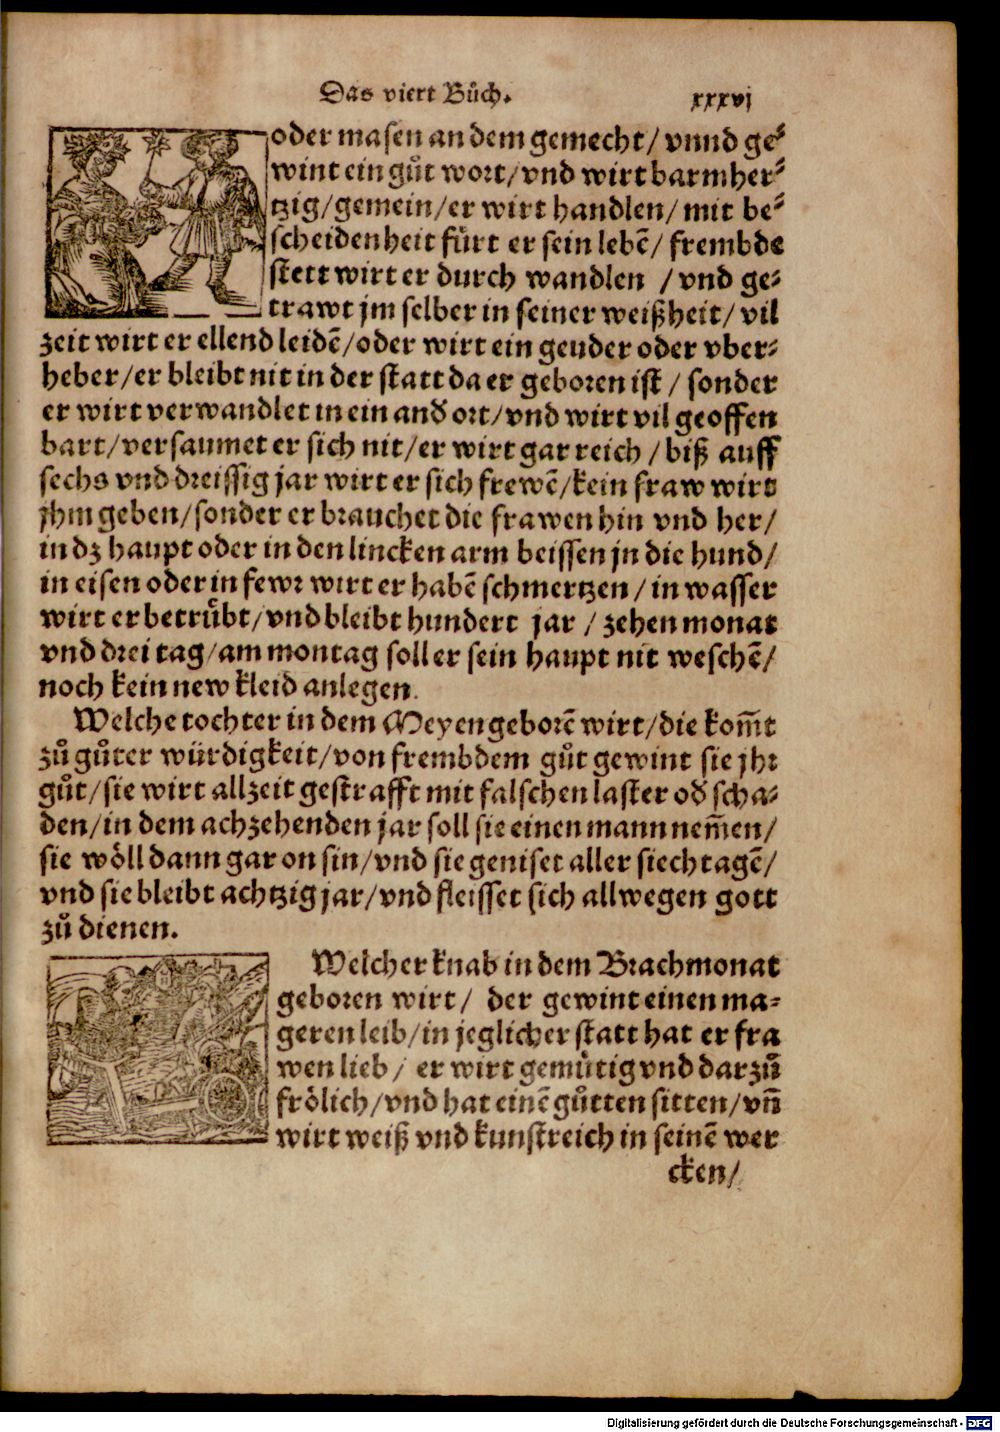 Das viert Bůch.
xxxvj
oder masen an dem gemecht/ vnnd ge⸗
wint ein gůt wort/vnd wirt barmher⸗
tzig/gemein/er wirt handlen/ mit be⸗
scheidenheit fürt er sein lebē/ frembde
stett wirt er durch wandlen / vnd ge⸗
trawt jm selber in seiner weißheit/ vil
zeit wirt er ellend leidē/oder wirt ein geuder oder vber⸗
heber/er bleibt nit in der statt da er geboren ist / sonder
er wirt verwandlet in ein and ort/vnd wirt vil geoffen
bart/versaumet er sich nit/er wirt gar reich / biß auff
sechs vnd dreissig jar wirt er sich frewē/kein fraw wirt
jhm geben/sonder er brauchet die frawen hin vnd her/
in dz haupt oder in den lincken arm beissen jn die hund/
in eisen oder in fewr wirt er habē schmertzen / in wasser
wirt er betrůbt/vnd bleibt hundert jar / zehen monat
vnd drei tag/am montag soll er sein haupt nit weschē/
noch kein new kleid anlegen.
Welche tochter in dem Meyen geborē wirt/die kom̄t
zů gůter würdigkeit/von frembdem gůt gewint sie jhr
gůt/sie wirt allzeit gestrafft mit falschen laster od scha⸗
den/in dem achzehenden jar soll sie einen mann nem̄en/
sie wöll dann gar on sin/vnd sie geniset aller siechtagē/
vnd sie bleibt achtzig jar/vnd fleisset sich allwegen gott
zů dienen.
Welcher knab in dem Brachmonat
geboren wirt/ der gewint einen ma⸗
geren leib/in jeglicher statt hat er fra
wen lieb/ er wirt gemůtig vnd darzů
frölich/vnd hat einē gůtten sitten/vn̄
wirt weiß vnd kunstreich in seinē wer
cken/
Digitalisierung gefördert durch die Deutsche Forschungsgemeinschaft - DFG